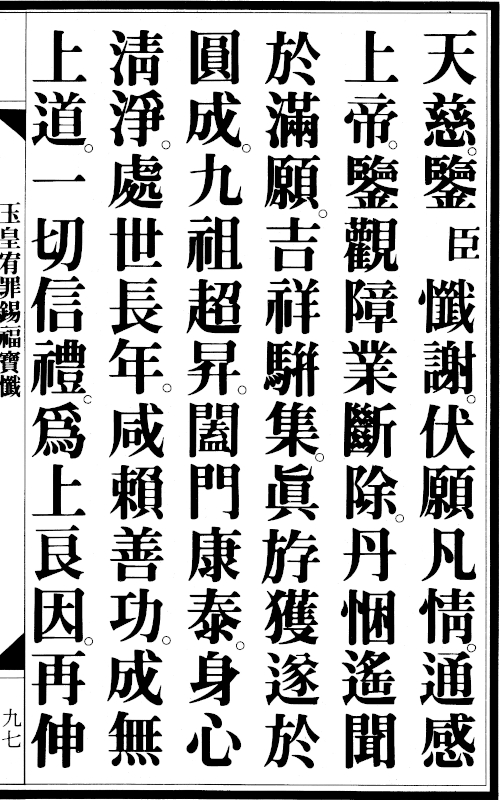 天慈。鑒臣懺謝。伏願凡情。通感
上帝。鑒觀障業斷除。丹悃遙聞
於滿願。吉祥駢集。眞斿獲遂於
圓成。九祖超昇。闔門康泰。身心
淸淨。處世長年。咸賴善功。成無
上道。一切信禮。爲上良因。再伸
玉皇宥罪錫福寶懺
九七